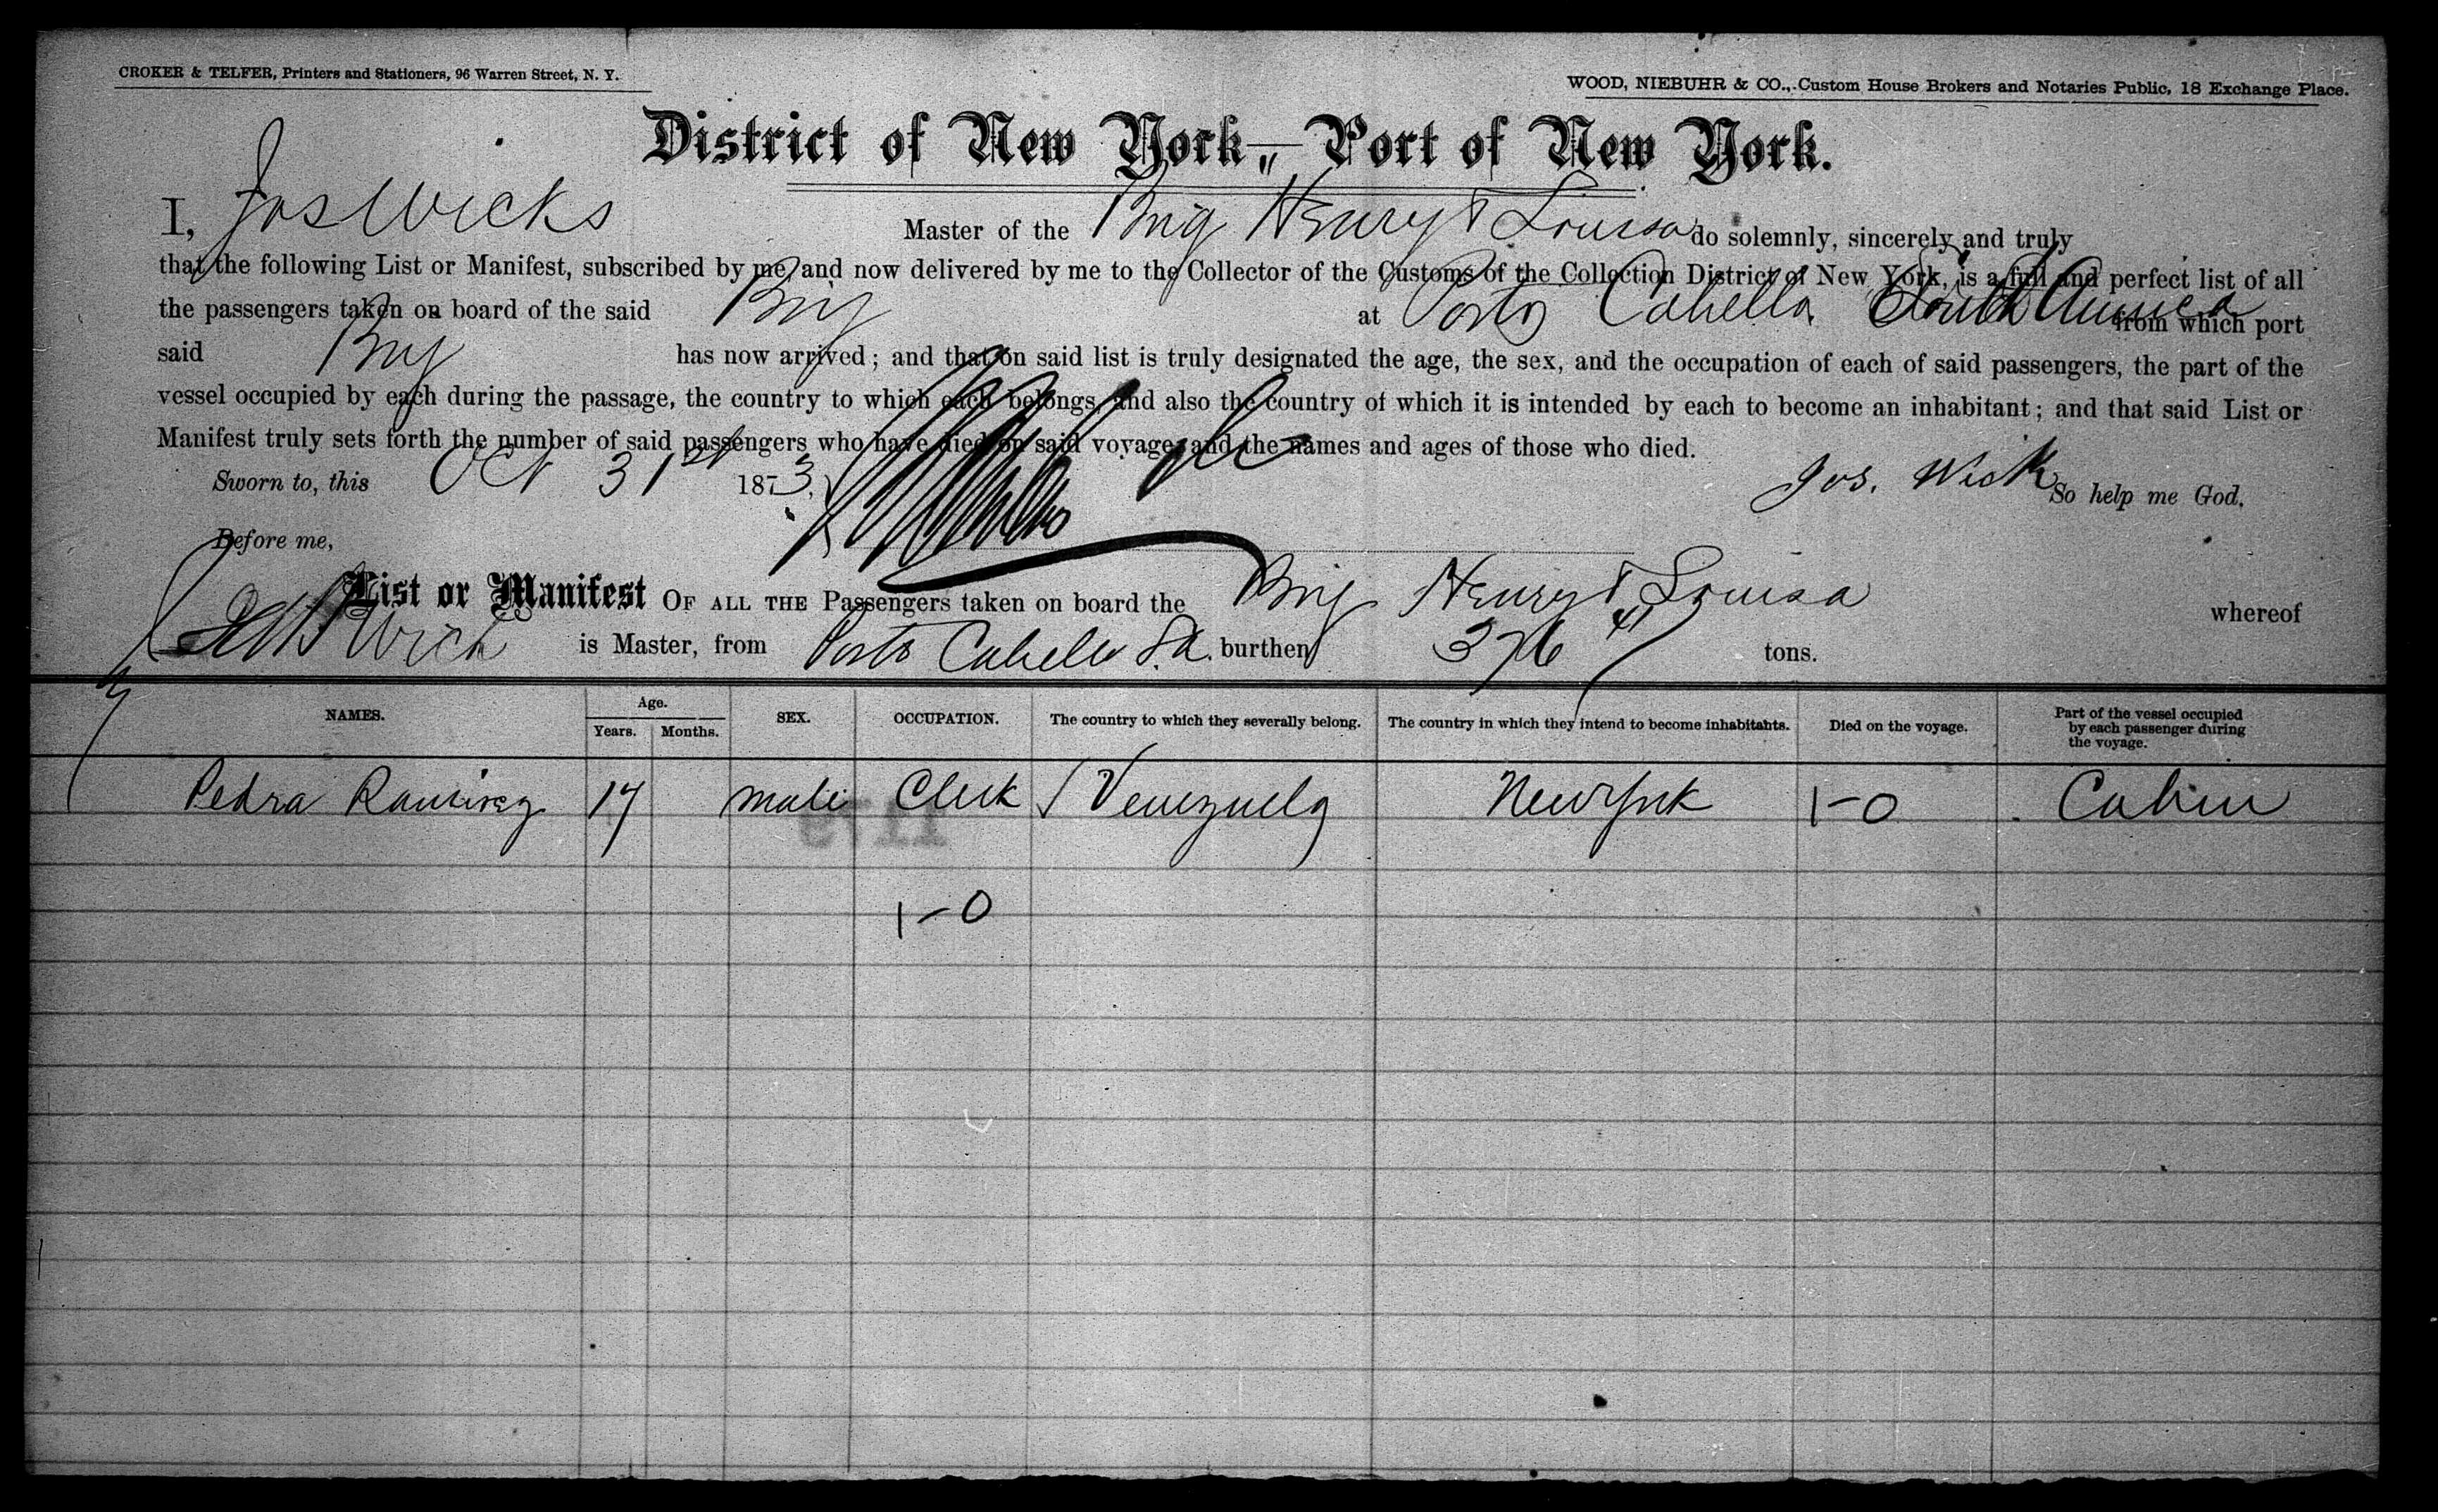 CROKER & TELFER, Printers and Stationers, 96 Warren Street, N. Y.
WOOD, NIEBUHR & CO., Custom House Brokers and Notaries Public, 18 Exchange Place.
District of New York, Port of New York.
I, Jos Wicks Master of the Brig Henry & Louisa do solemnly, sincerely and truly
that the following List or Manifest, subscribed by me, and now delivered by me to the Collector of the Customs of the Collection District of New York, is a full and perfect list of all
the passengers taken on board of the said Brig at Porto Cabello South America from which port
said Brig has now arrived; and that on said list is truly designated the age, the sex, and the occupation of each of said passengers, the part of the
vessel occupied by each during the passage, the country to which each belongs, and also the country of which it is intended by each to become an inhabitant; and that said List or
Manifest truly sets forth the number of said passengers who have died on said voyage, and the names and ages of those who died.
Sworn to, this Oct 31st 1873, Jos. Wicks So help me God.
Before me,
List or Manifest OF ALL THE Passengers taken on board the Brig Henry & Louisa whereof
Wicks is Master, from Porto Cabello S.A. burthen 376 41 tons.
NAMES. Age. Years. Months. SEX. OCCUPATION. The country to which they severally belong. The country in which they intend to become inhabitants. Died on the voyage. Part of the vessel occupied by each passenger during the voyage.
Pedra Ramirez 17 male Clerk Venezuela New York 1-0 Cabin
1179
1-0